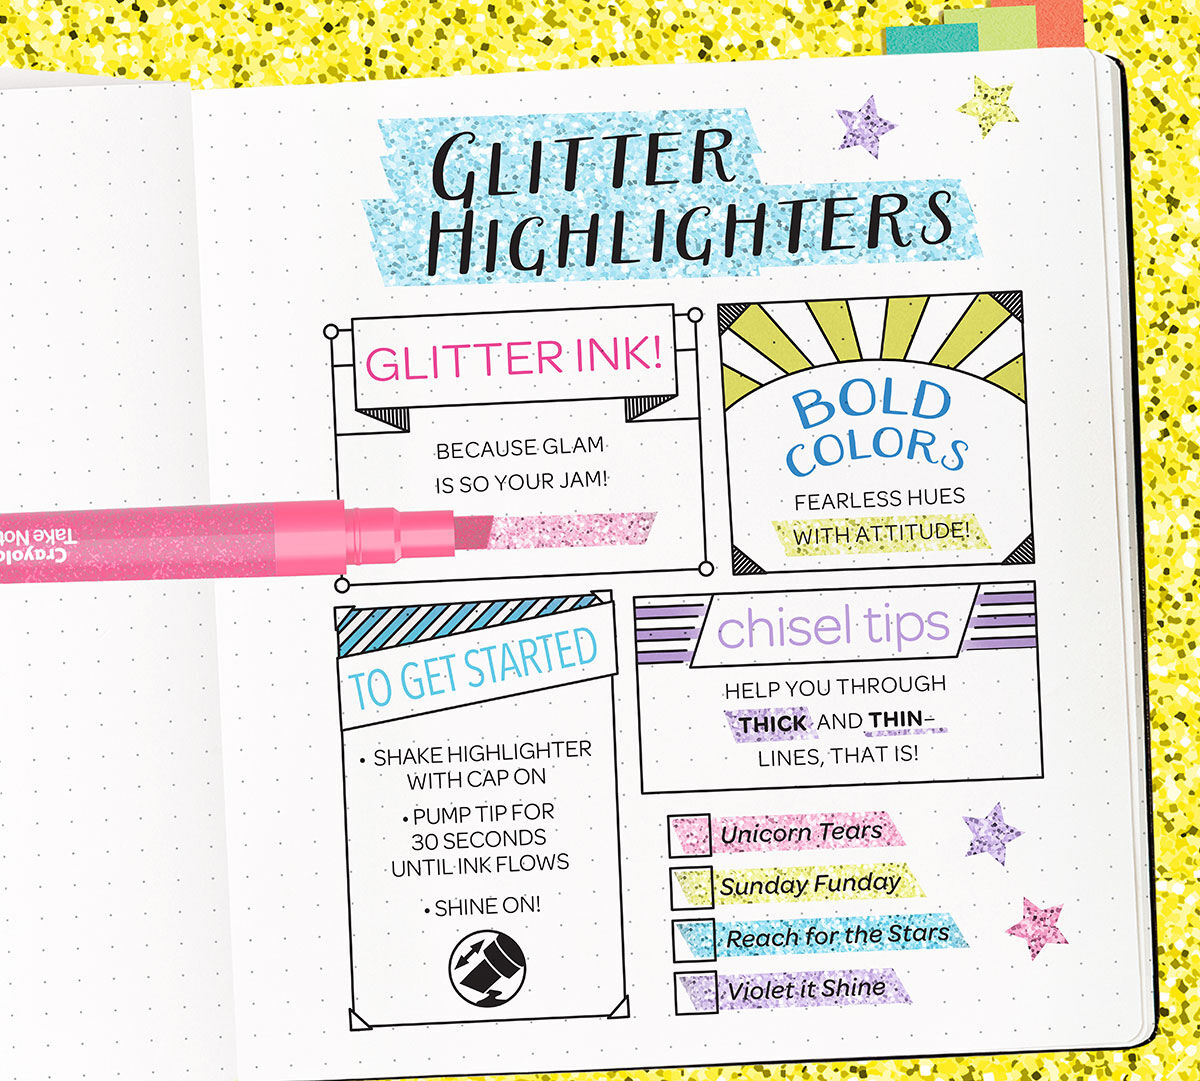 GLITTER
HIGHLIGHTERS
GLITTER INK!
BECAUSE GLAM
IS SO YOUR JAM!
BOLD
COLORS
FEARLESS HUES
WITH ATTITUDE!
Take Not
Crayola
TO GET STARTED
• SHAKE HIGHLIGHTER
WITH CAP ON
• PUMP TIP FOR
30 SECONDS
UNTIL INK FLOWS
• SHINE ON!
chisel tips
HELP YOU THROUGH
THICK AND THIN–
LINES, THAT IS!
Unicorn Tears
Sunday Funday
Reach for the Stars
Violet it Shine